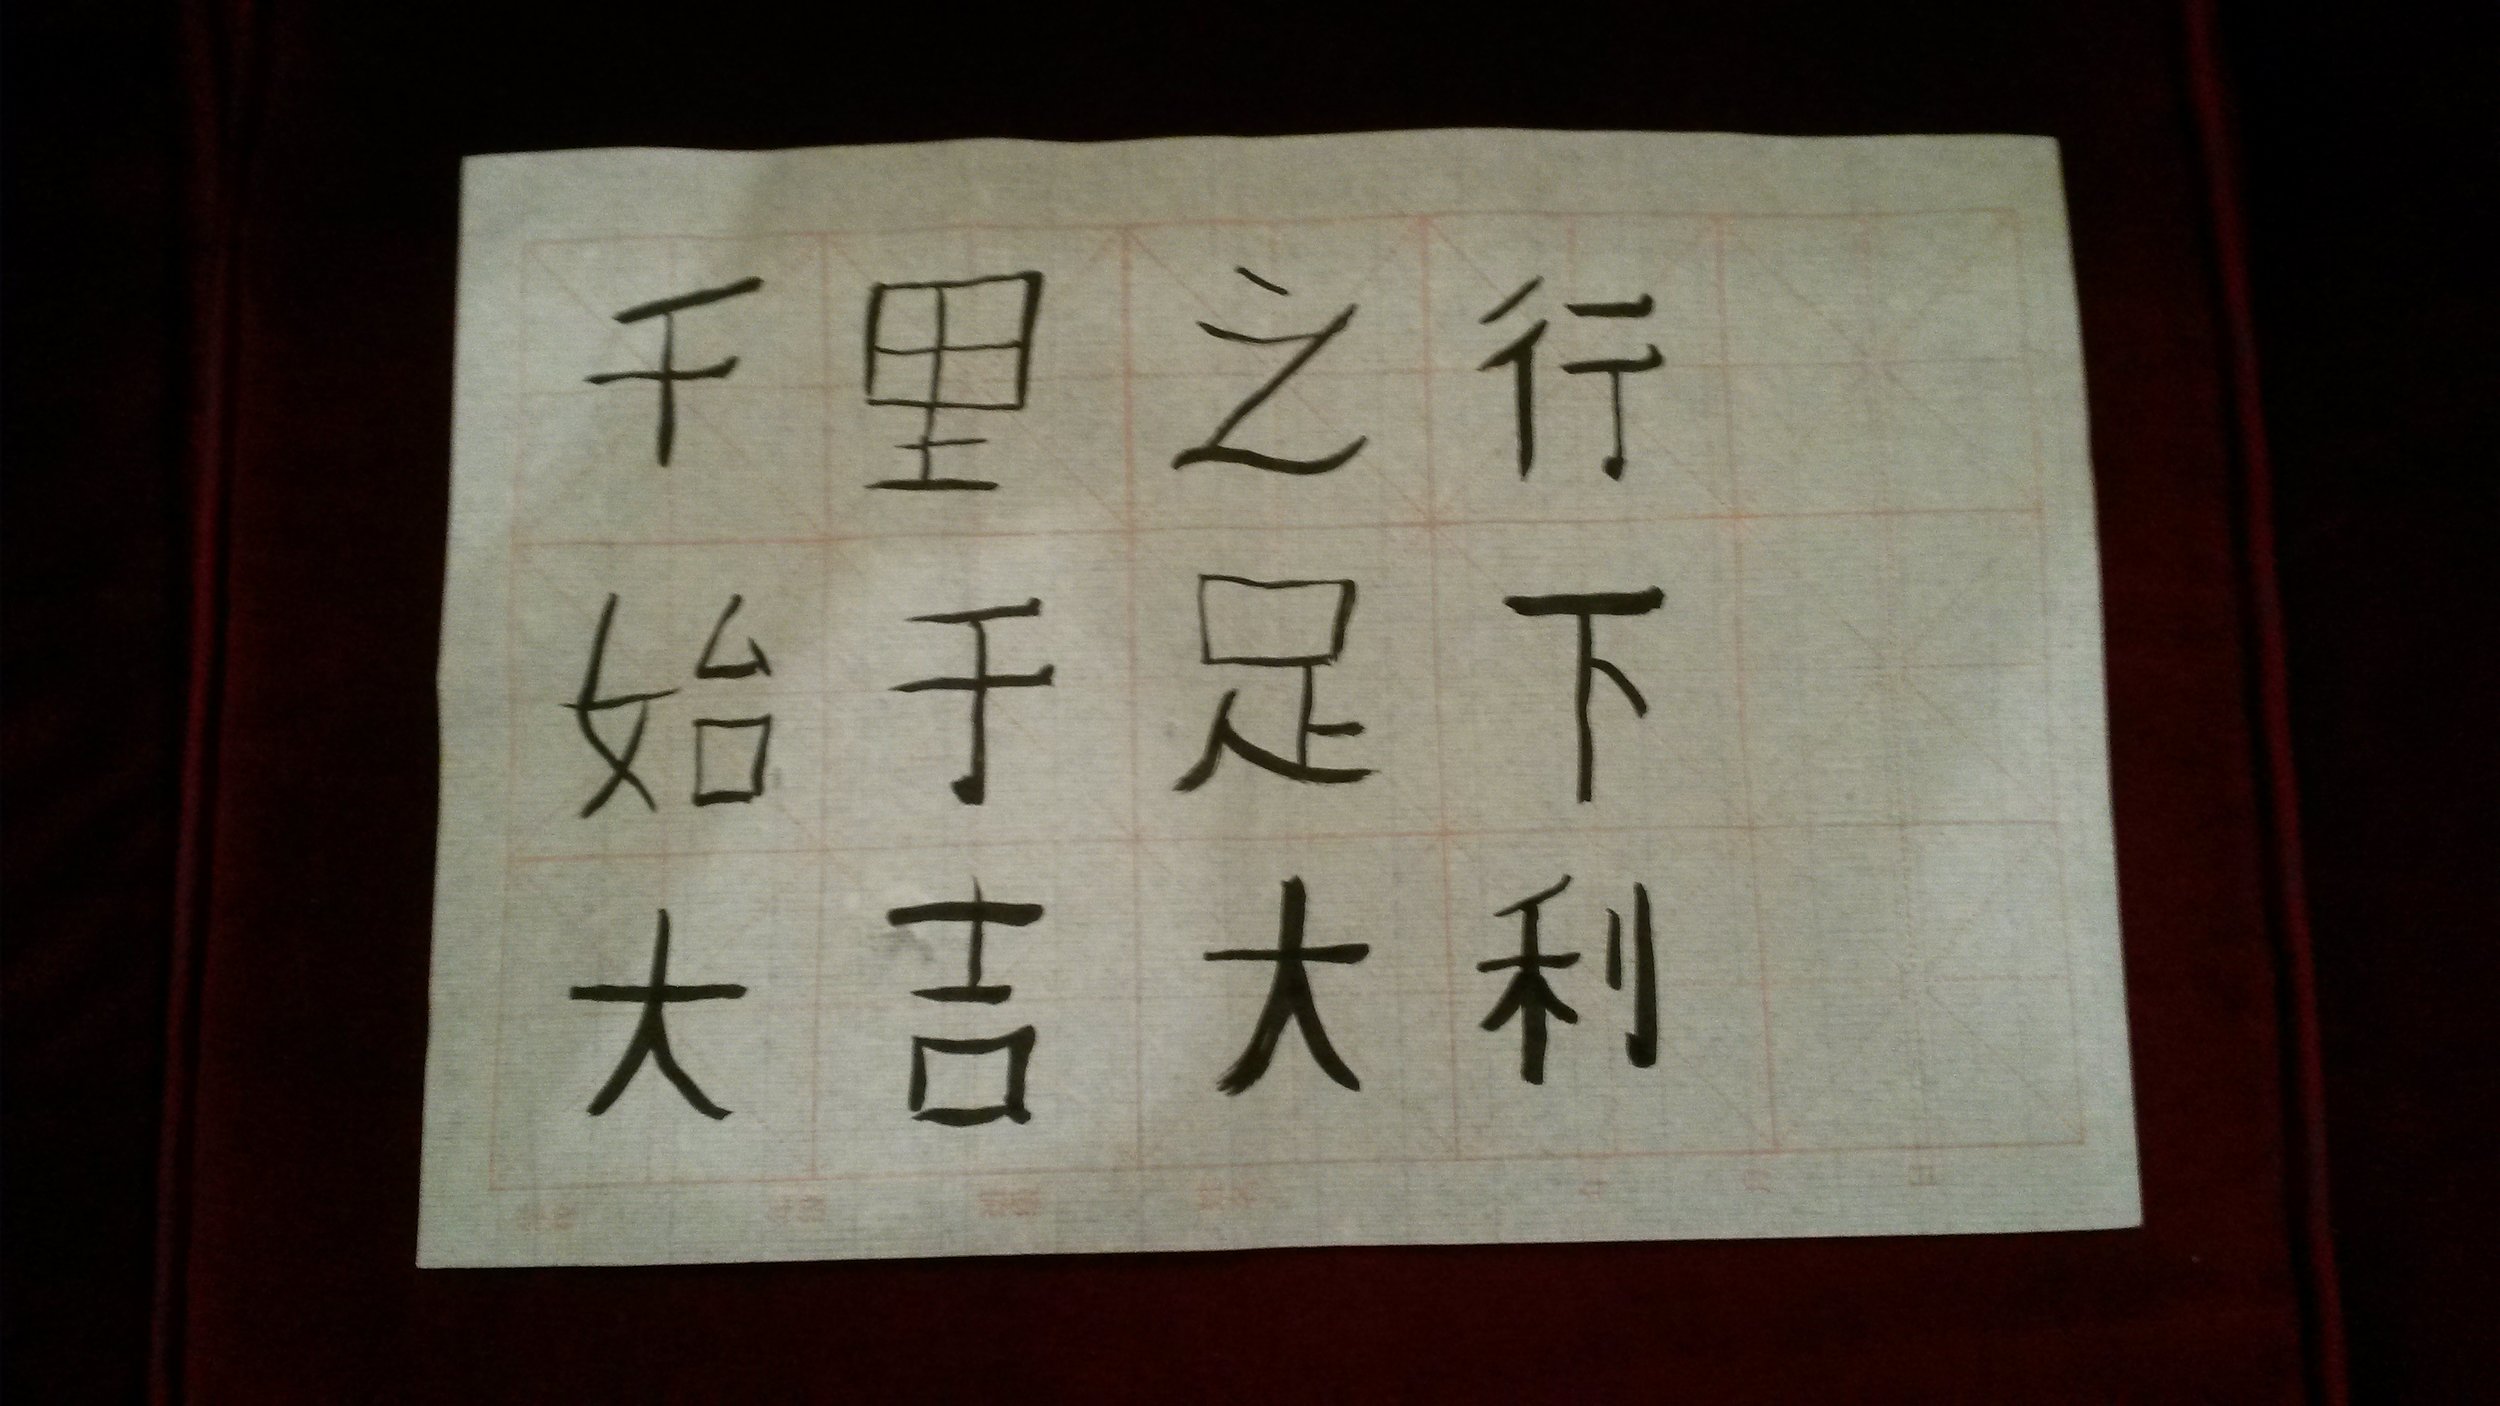 千里之行
始于足下
大吉大利